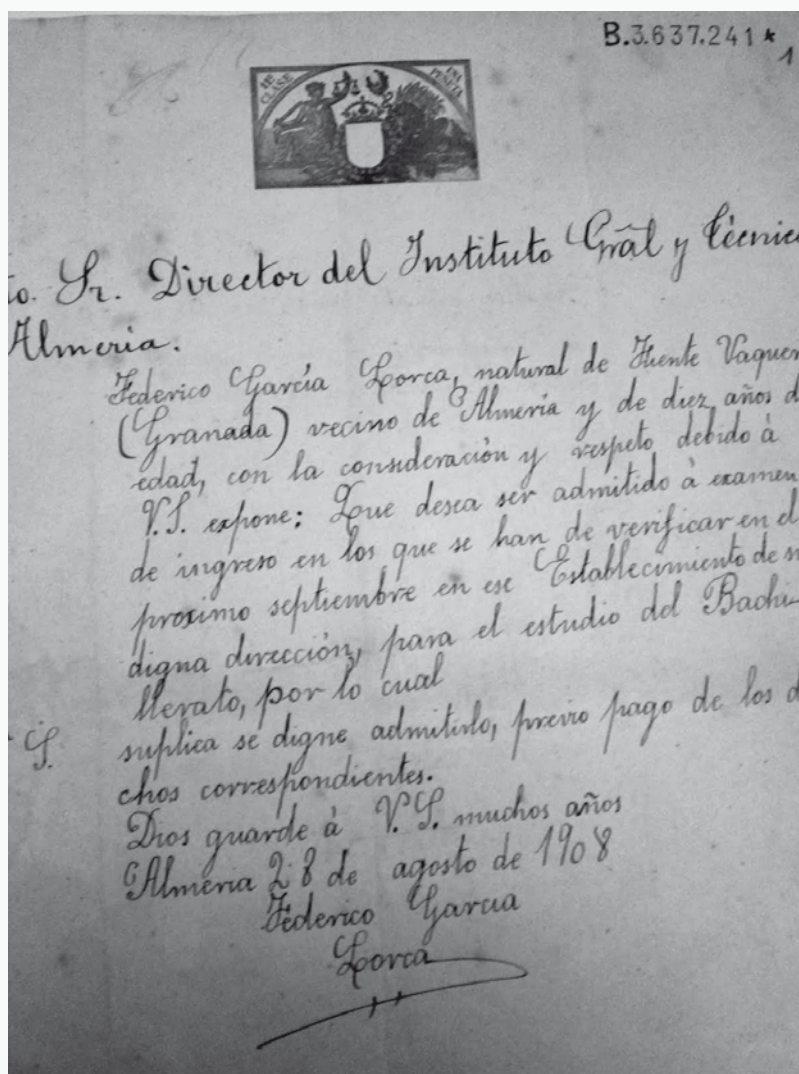 B.3.637.241*
1
11ª CLASE
UNA PESETA
Sr. Director del Instituto Gral y Técnic
Almeria.
Federico García Lorca, natural de Fuente Vaquer
(Granada) vecino de Almería y de diez años d
edad, con la consideración y respeto debido à
V.S. expone: Que desea ser admitido à examen
de ingreso en los que se han de verificar en el
proximo septiembre en ese Establecimiento de su
digna dirección, para el estudio del Bachi-
llerato, por lo cual
S. suplica se digne admitirlo, previo pago de los d
chos correspondientes.
Dios guarde à V.S. muchos años
Almeria 28 de agosto de 1908
Federico Garcia
Lorca